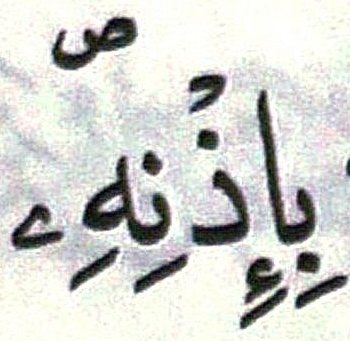 بِإِذْنِهِۦ ص